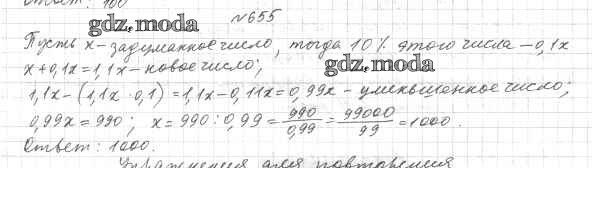 Ответ: 100
№655
gdz.moda
Пусть x-задуманное число, тогда 10% этого числа - 0,1x
x+0,1x=1,1x - новое число;
gdz.moda
1,1x-(1,1x·0,1)=1,1x-0,11x=0,99x - уменьшенное число;
0,99x=990; x=990:0,99=990/0,99=99000/99=1000.
Ответ: 1000.
Упражнения для повторения